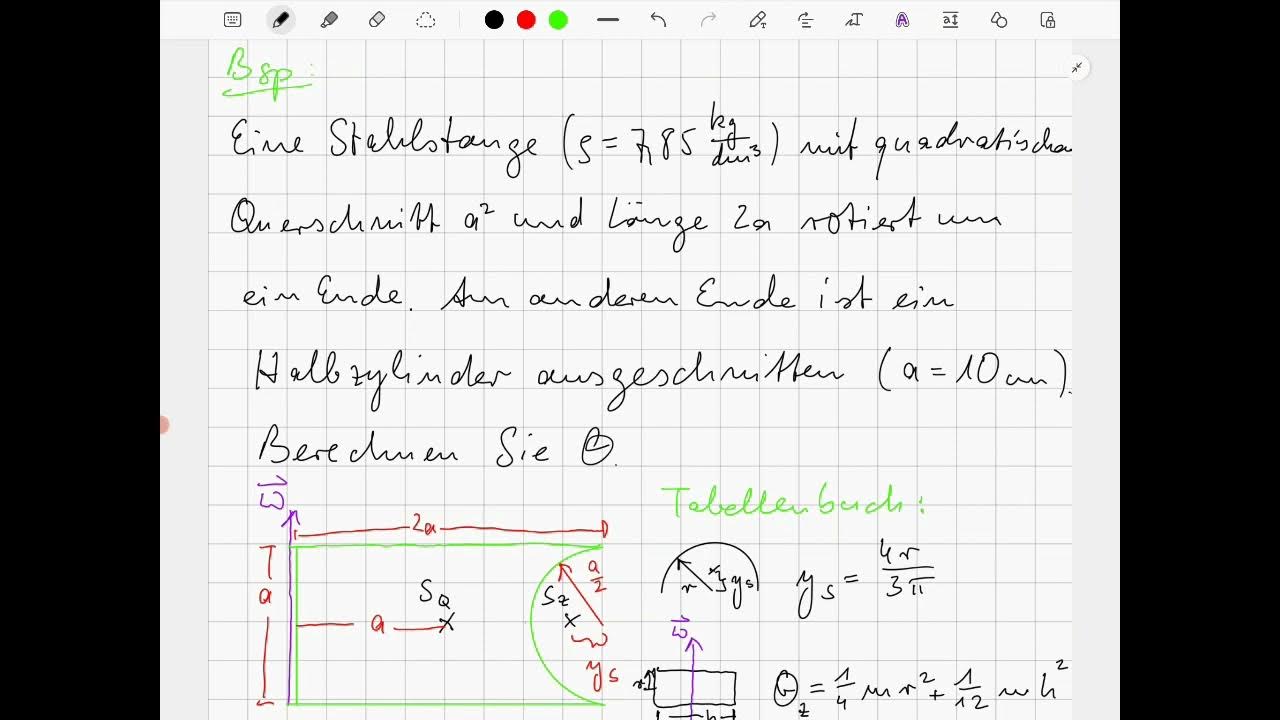 Bsp:
Eine Stahlstange (ρ = 7,85 kg/dm³) mit quadratischem
Querschnitt a² und Länge 2a rotiert um
ein Ende. Am anderen Ende ist ein
Halbzylinder ausgeschnitten (a = 10cm).
Berechnen Sie Θ.
ω
Tabellenbuch:
2a
a
a/2
S_Q
S_Z
a
y_s
r
y_s
y_s = 4r/3π
ω
r
h
Θ_z = 1/4 m r² + 1/12 m h²